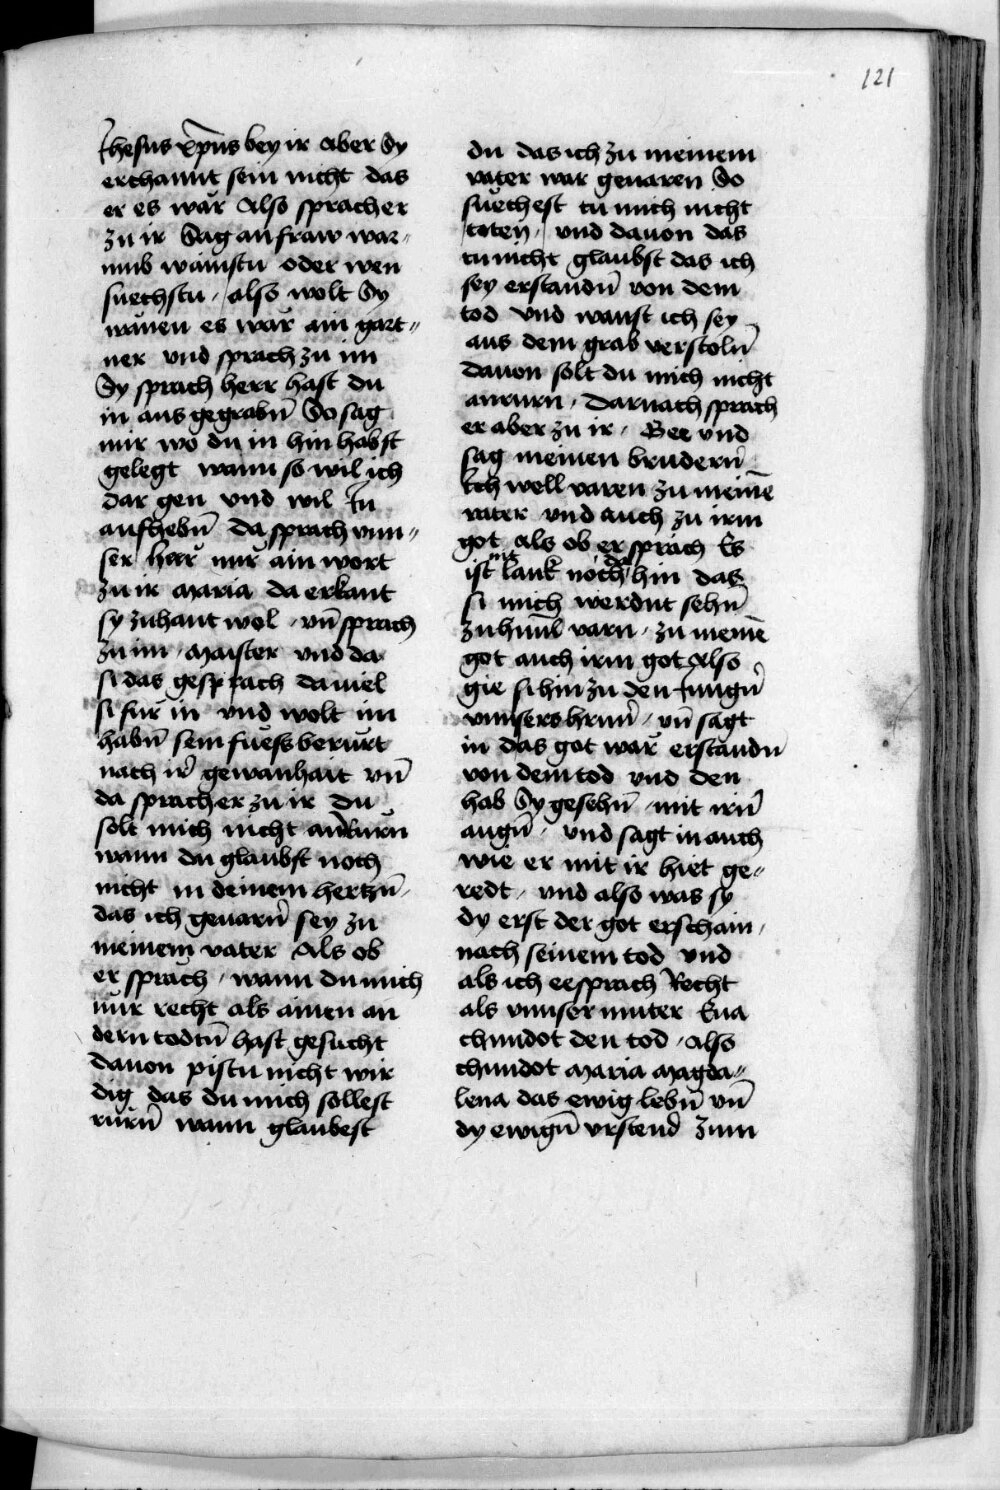 121
Jhesus xp̄us bey ir Aber Sy
erchannt sein nicht das
er es wär Also sprach er
zu ir Sag an fraw war⸗
umb wainstu oder wen
suechstu / also wolt Sy
wänen es wär ain gart⸗
ner vnd sprach zu im
Sy sprach herr hast du
in aus gegrabn̄ So sag
mir wo du in hin habst
gelegt wann so wil ich
dar gen vnd wil In
aufhebn̄ Da sprach vnn⸗
ser herr nur ain wort
zu ir Maria da erkant
sy zuhant wol / vn̄ sprach
zu im / Maister vnd da
si das gesprach da niel
si für in vnd wolt im
habn̄ sein fuess berürt
nach ir gewanhait vn̄
da sprach er zu ir Du
solt mich nicht anrürn
wann du glaubst noch
nicht in deinem hertzn̄ /
das ich geuarn̄ sey zu
meinem vater Als ob
er spräch / wann du mich
nür recht als ainen an
dern todtn̄ hast gesucht
dauon pistu nicht wir
dig das du mich sollest
rürn̄ wann glaubest
du das ich zu meinem
vater wär geuaren So
suechest tu mich nicht
toten / vnd dauon das
tu nicht glaubst das ich
sey erstandn̄ von dem
tod vnd wanst ich sey
aus dem grab verstoln̄
dauon solt du mich nicht
anrurn / Darnach sprach
er aber zu ir / Gee vnd
sag meinen brudern̄
Ich well varen zu meinē
vater vnd auch zu irm
got als ob er spräch Es
ist nit lank noch da hin das
si mich werdnt sehn̄
zu himl varn / zu meinē
got auch irm got Also
gie si hin zu den Jungn̄
vnnsers hrnn̄ / vn̄ sagt
in das got wär erstandn̄
von dem tod vnd den
hab Sy gesehn̄ / mit irn̄
augn̄ / vnd sagt in auch
wie er mit ir hiet ge⸗
redt / vnd also was sy
dy erst der got erschain /
nach seinem tod vnd
als ich ee sprach Recht
als vnnser muter Eua
chundot den tod / Also
chundot Maria Magda⸗
lena das ewig lebn̄ vn̄
dy ewign̄ vrstend zum